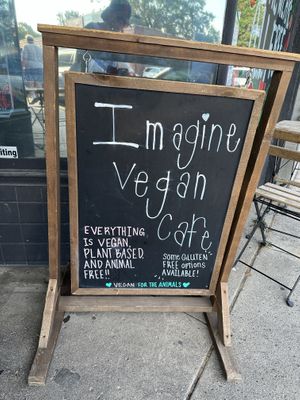 Imagine
Vegan
Cafe
EVERYTHING
IS VEGAN,
PLANT BASED
AND ANIMAL
FREE!!
SOME GLUTEN
FREE OPTIONS
AVAILABLE!
VEGAN FOR THE ANIMALS